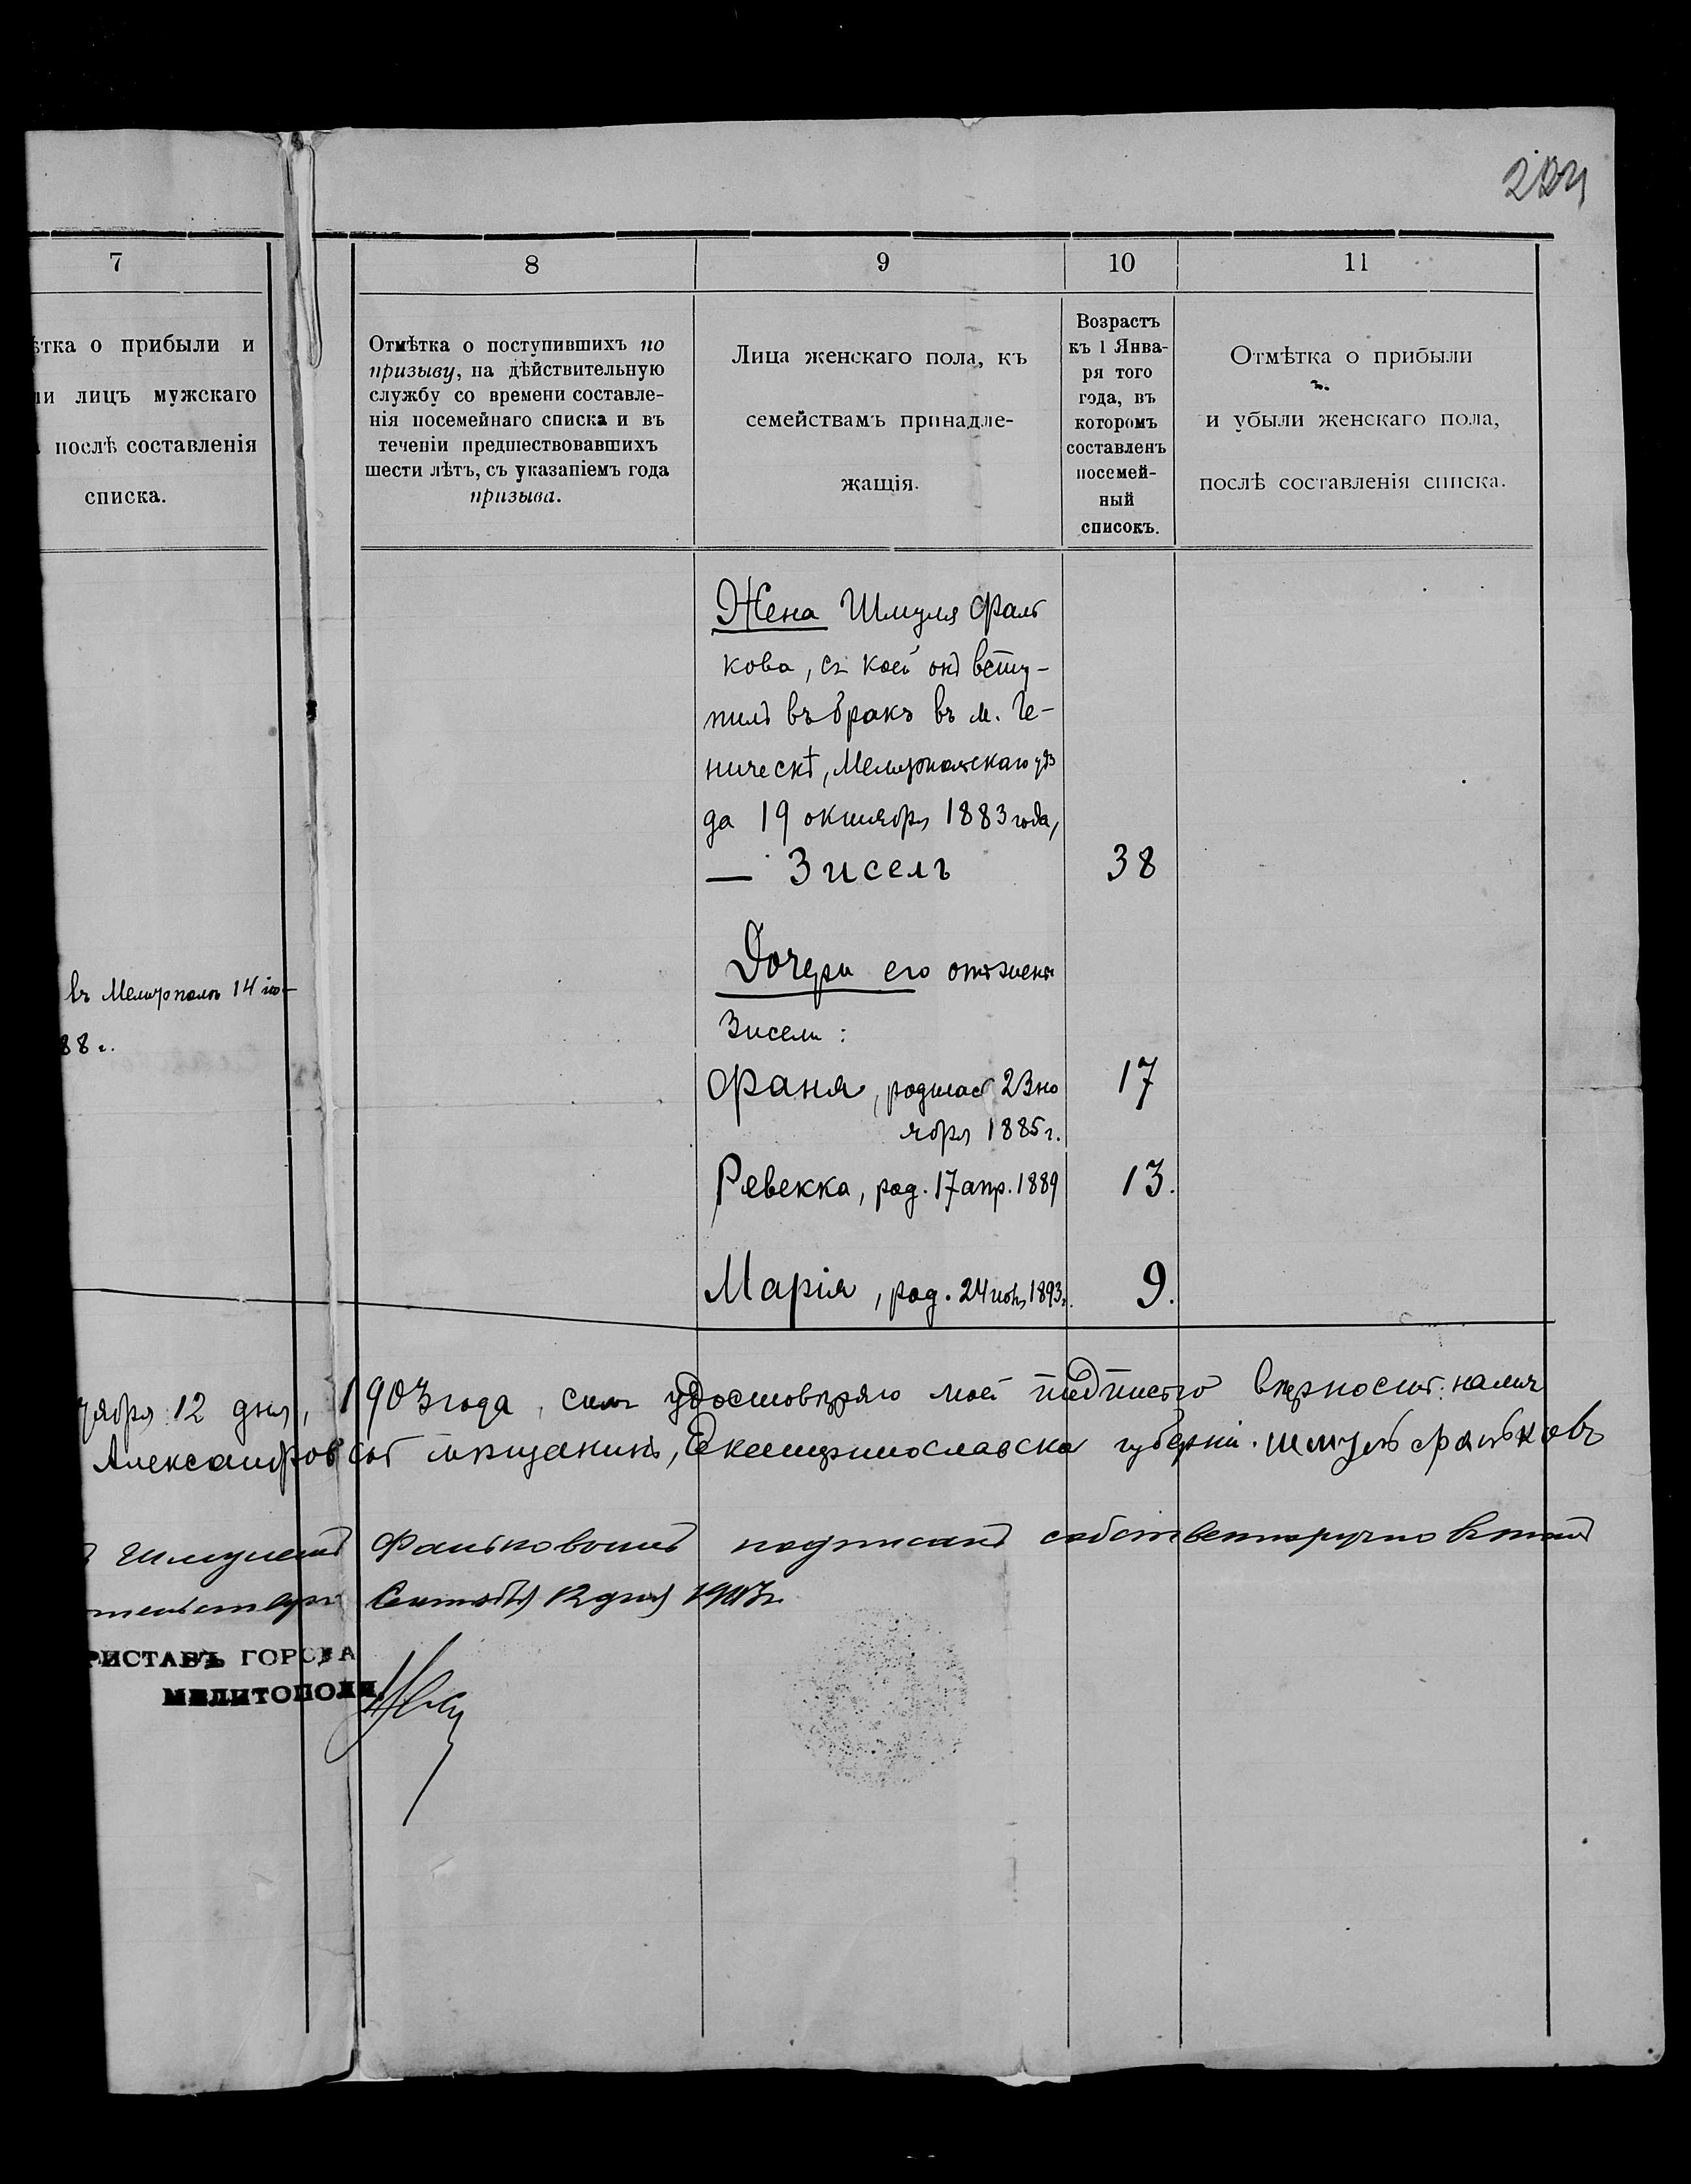 7
ѣтка о прибыли и
ли лицъ мужскаго
послѣ составленія
списка.
8
Отмѣтка о поступившихъ по
призыву, на дѣйствительную
службу со времени составле-
нія посемейнаго списка и въ
теченіи предшествовавшихъ
шести лѣтъ, съ указаніемъ года
призыва.
9
Лица женскаго пола, къ
семействамъ принадле-
жащія.
10
Возрастъ
къ 1 Янва-
ря того
года, въ
которомъ
составленъ
посемей-
ный
списокъ.
11
Отмѣтка о прибыли
и убыли женскаго пола,
послѣ составленія списка.
Жена Шмуля Фаль
кова, съ коей онъ всту-
пилъ въ бракъ въ м. Ге-
ническѣ, Мелитопольскаго уѣз
да 19 октября 1883 года,
— Зисель 38
Дочери его отъ жены
Зисели:
въ Мелитополѣ 14 ію-
88 г.
Фаня, родилась 23 но 17
ября 1885 г.
Ревекка, род. 17 апр. 1889 13.
Марія, род. 24 1893 г. 9.
тября 12 дня, 1903 года, симъ удостовѣряю моей подписью
Александровскій мѣщанинъ, Екатеринославской губерніи. Шмуль Фальковъ
Шмулемъ Фальковымъ подписанъ собственноручно въ томъ
Сентября 12 дня 1903 г.
РИСТАВЪ ГОРОДА
МЕЛИТОПОЛЯ.